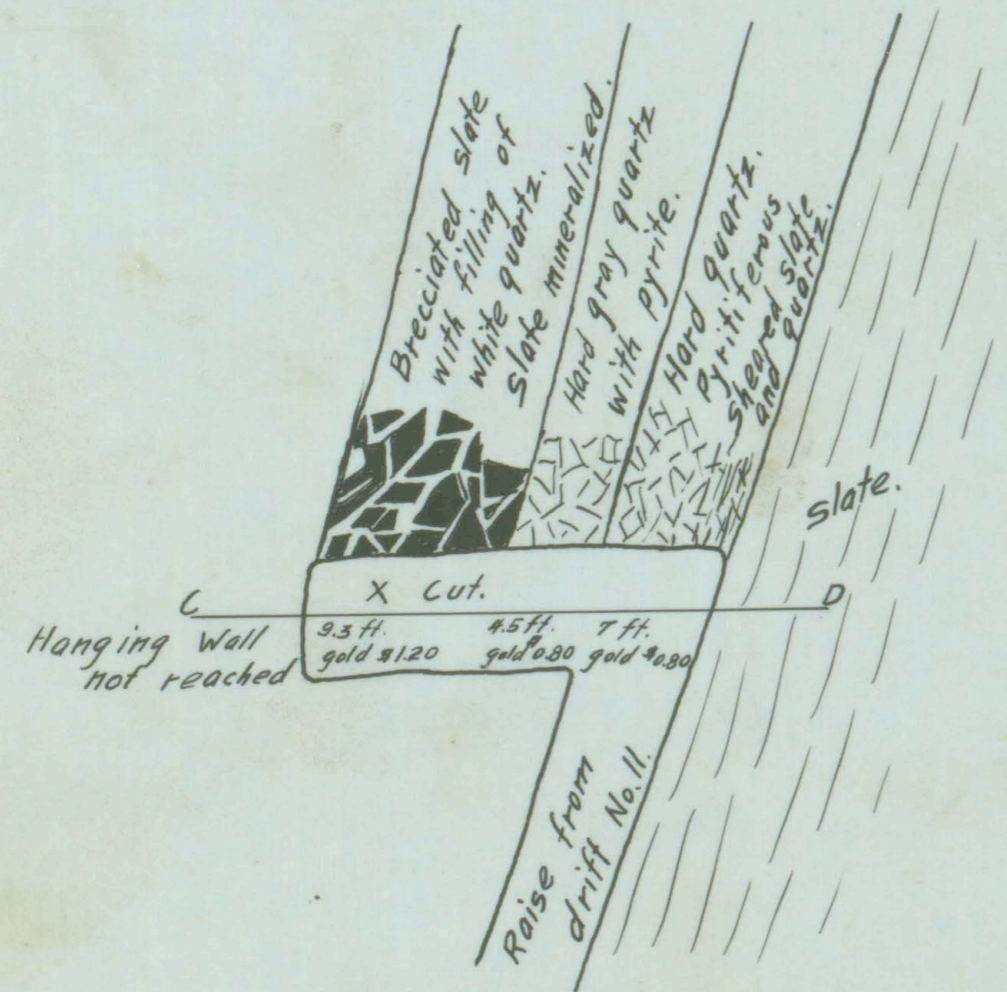 Brecciated slate
with filling of
white quartz.
Slate mineralized.
Hard gray quartz
with pyrite.
Hard quartz.
Pyritiferous
sheared slate
and quartz.
Slate.
X Cut.
C D
Hanging Wall
not reached
9.3 ft. 4.5 ft. 7 ft.
gold $1.20 gold $0.80 gold $0.80
Raise from
drift No. 11.